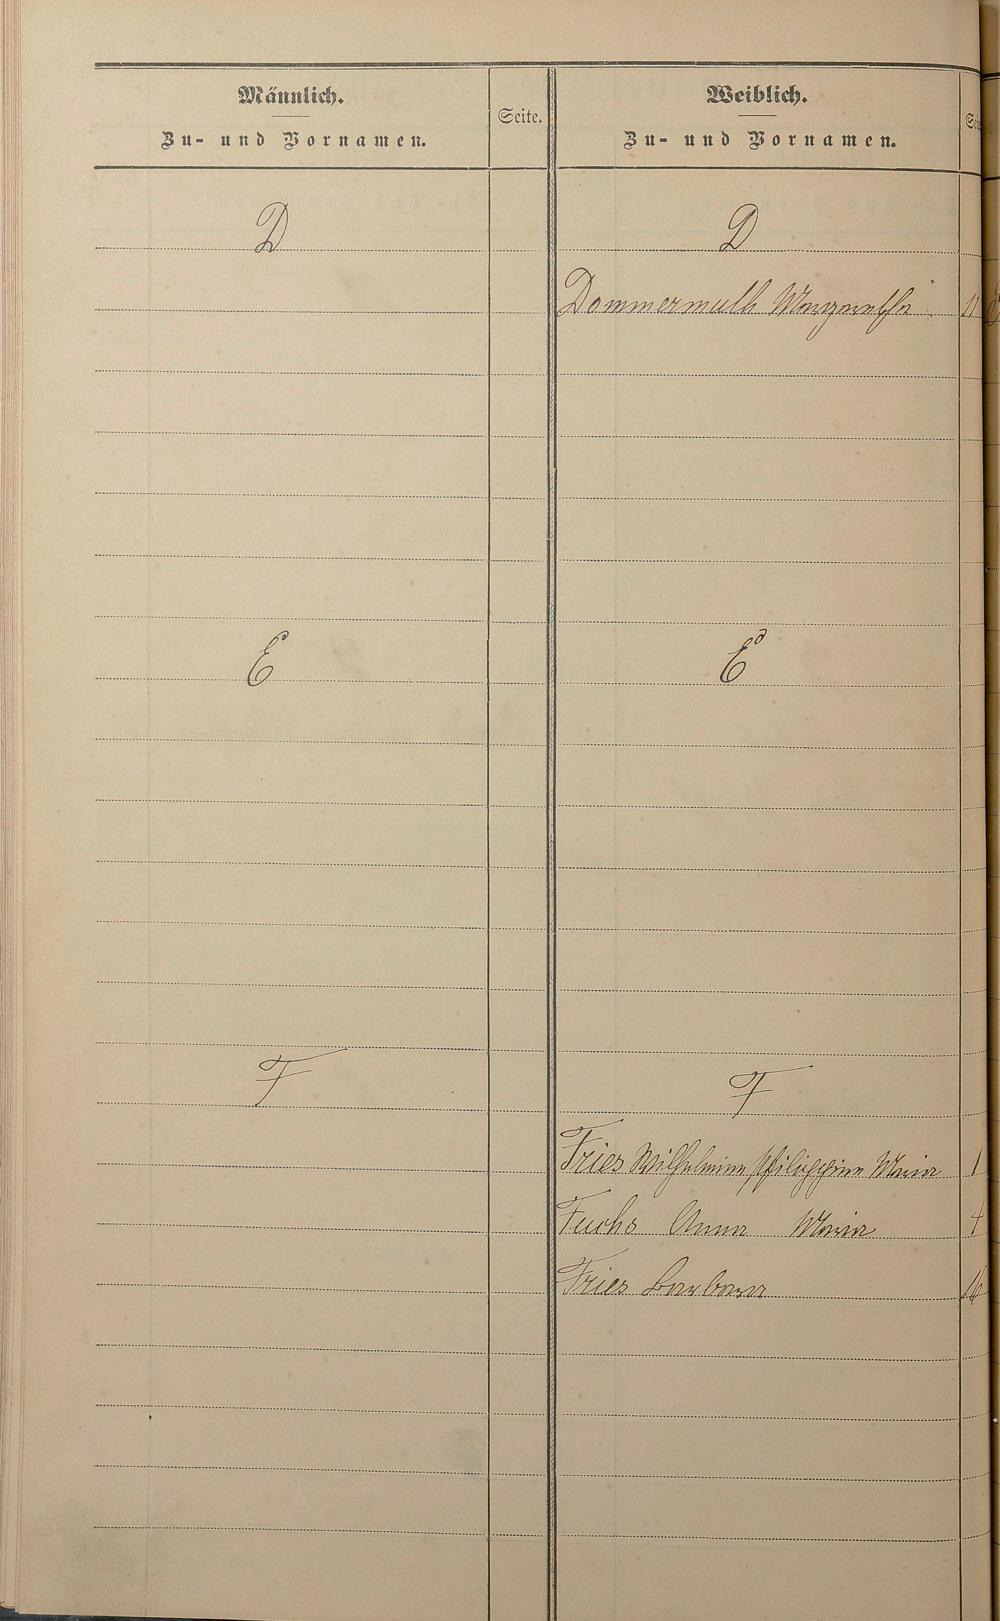 Männlich.
Zu- und Vornamen.
Seite.
Weiblich.
Zu- und Vornamen.
D
D
Dommermuth Margaretha 11
E
E
F
F
Fries Wilhelmine Philippine Maria 1
Fuchs Anna Maria 4
Fries Barbara 16